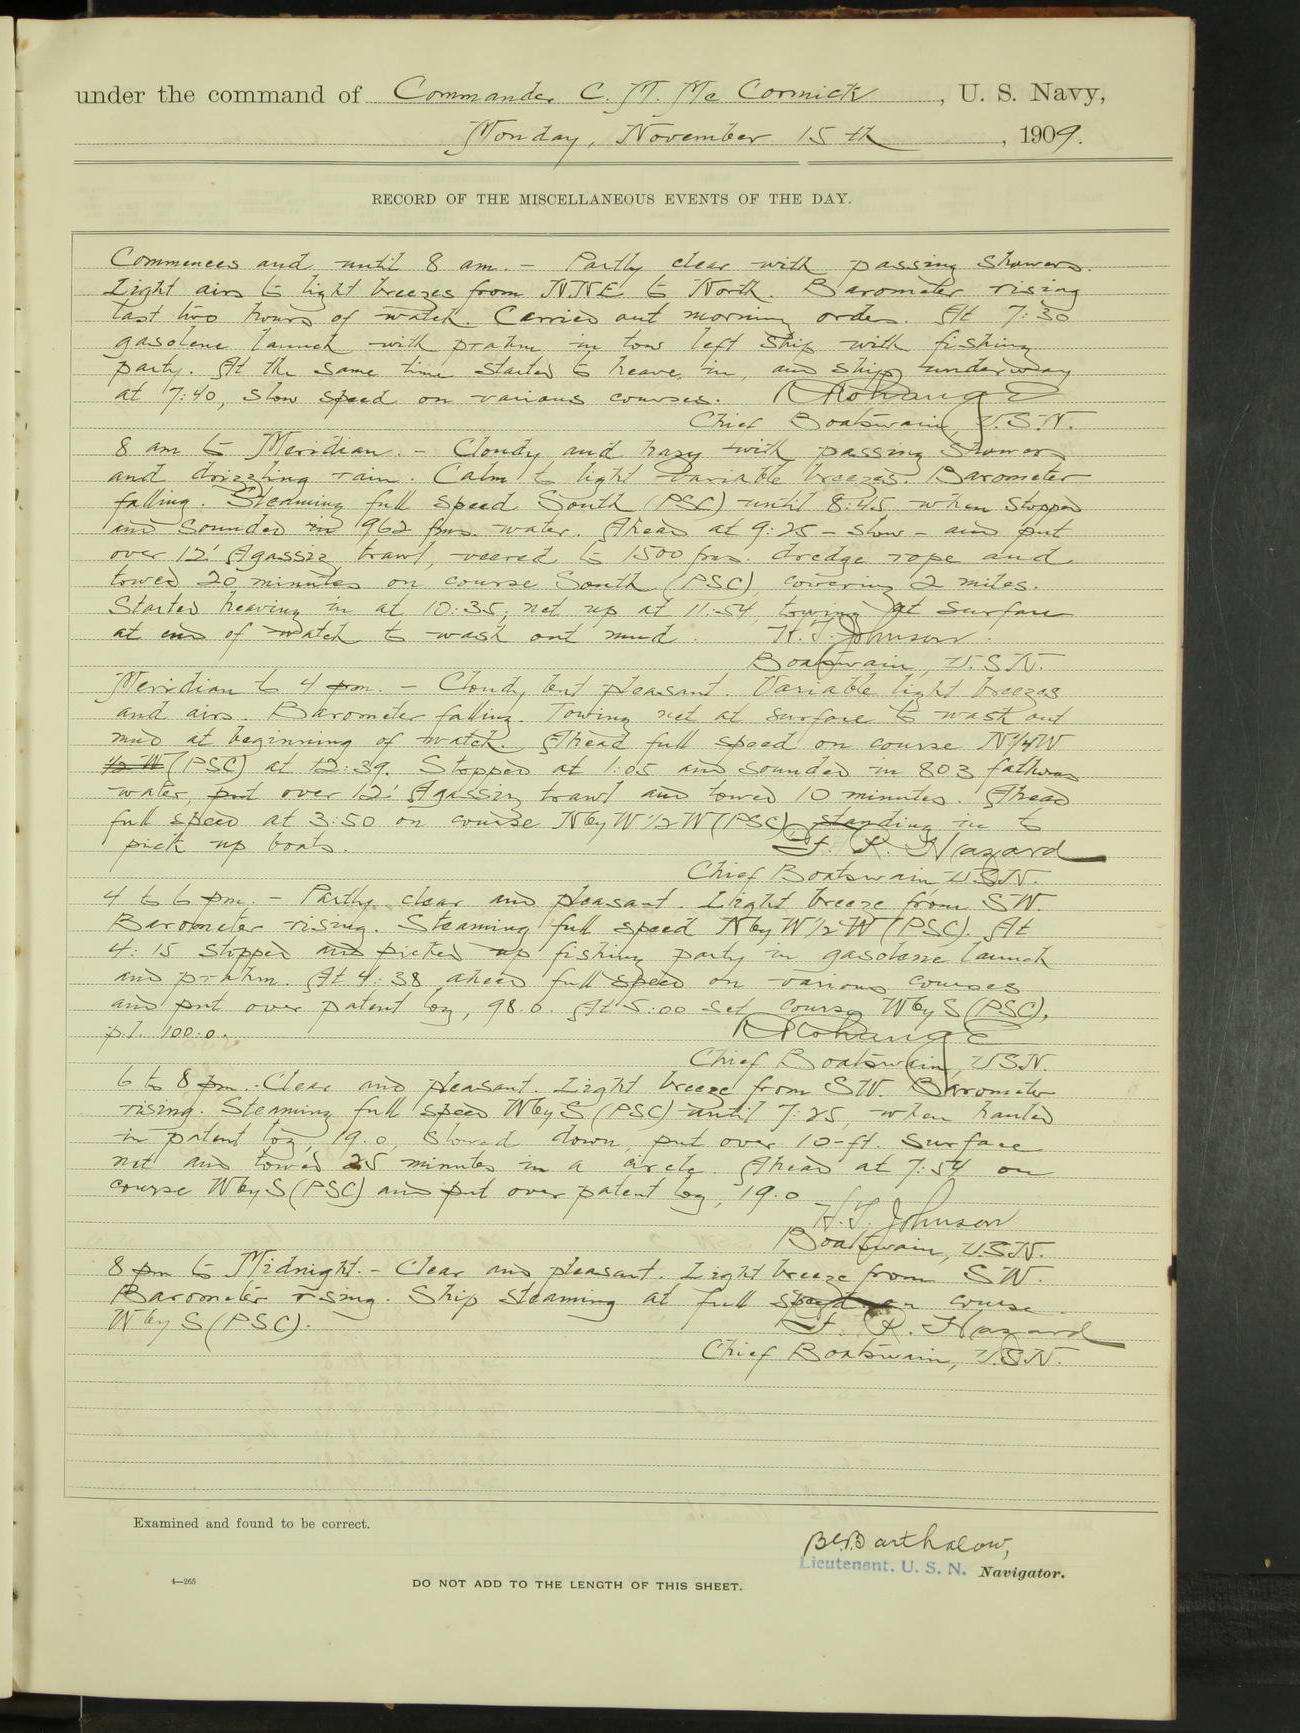 under the command of Commander C. M. McCormick, U. S. Navy,
Monday, November 15th, 1909.
RECORD OF THE MISCELLANEOUS EVENTS OF THE DAY.
Commences and until 8 am. - Partly clear with passing showers.
Light airs to light breezes from NNE to North. Barometer rising
last two hours of watch. Carried out morning orders. At 7:30
gasolene launch with prahm in tow left ship with fishing
party. At the same time started to heave in, and ship underway
at 7:40, slow speed on various courses.
Chief Boatswain, U.S.N.
8 am to Meridian. - Cloudy and hazy with passing showers
and drizzling rain. Calm to light variable breezes. Barometer
falling. Steaming full speed South (PSC) until 8:45 when stopped
and sounded in 962 fms. water. Ahead at 9:25 - slow - and put
over 12' Agassiz trawl, veered to 1500 fms. dredge rope and
towed 20 minutes on course South (PSC), covering 2 miles.
Started heaving in at 10:35; net up at 11:54, towing at surface
at end of watch to wash out mud. H. T. Johnson.
Boatswain, U.S.N.
Meridian to 4 pm. - Cloudy but pleasant. Variable light breezes
and airs. Barometer falling. Towing net at surface to wash out
mud at beginning of watch. Ahead full speed on course N¼W
½ W (PSC) at 12:39. Stopped at 1:05 and sounded in 803 fathoms
water, put over 12' Agassiz trawl and towed 10 minutes. Ahead
full speed at 3:50 on course NbyW½W (PSC), standing in to
pick up boats. F. R. Hazard
Chief Boatswain U.S.N.
4 to 6 pm. - Partly clear and pleasant. Light breeze from SW.
Barometer rising. Steaming full speed NbyW½W (PSC). At
4:15 stopped and picked up fishing party in gasolene launch
and prahm. At 4:38 ahead full speed on various courses
and put over patent log, 98.0. At 5:00 set course WbyS (PSC),
p.l. 100.0.
Chief Boatswain, U.S.N.
6 to 8 pm. - Clear and pleasant. Light breeze from SW. Barometer
rising. Steaming full speed WbyS (PSC) until 7:25, when hauled
in patent log, 19.0, slowed down, put over 10-ft. surface
net and towed 25 minutes in a circle. Ahead at 7:54 on
course WbyS (PSC) and put over patent log, 19.0
H. T. Johnson
Boatswain, U.S.N.
8 pm to Midnight. - Clear and pleasant. Light breeze from SW.
Barometer rising. Ship steaming at full speed on course
WbyS (PSC). F. R. Hazard
Chief Boatswain, U.S.N.
Examined and found to be correct.
Barthalow,
Lieutenant. U. S. N. Navigator.
4—265
DO NOT ADD TO THE LENGTH OF THIS SHEET.